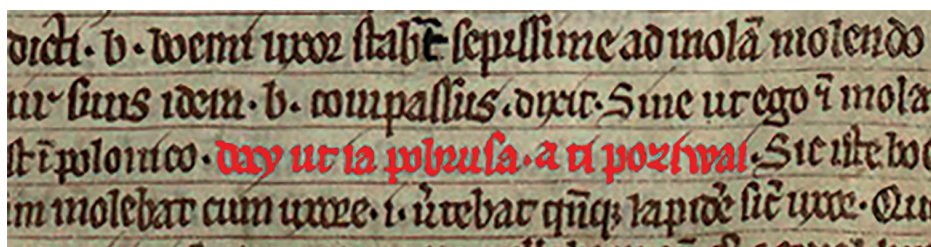 dicti · b · bovverni uxor stabat sepissime ad molā molendo
suus idem · b · compassus · dixit · Sine ut ego ī mola
st ī polonico · day ut ia pobrusa · a ti poziwai · Sic iste boe
im molebat cum uxore · i · v̄tebat qn̄q; lapidē sic̄ uxor · Qu